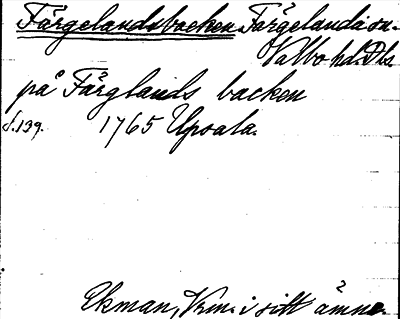 Färgelandsbacken Färgelanda sn.
Valbo hd. Dls
på Färglands backen
S. 139. 1765 Upsala.
Ekman, Vrm. i sitt ämne.